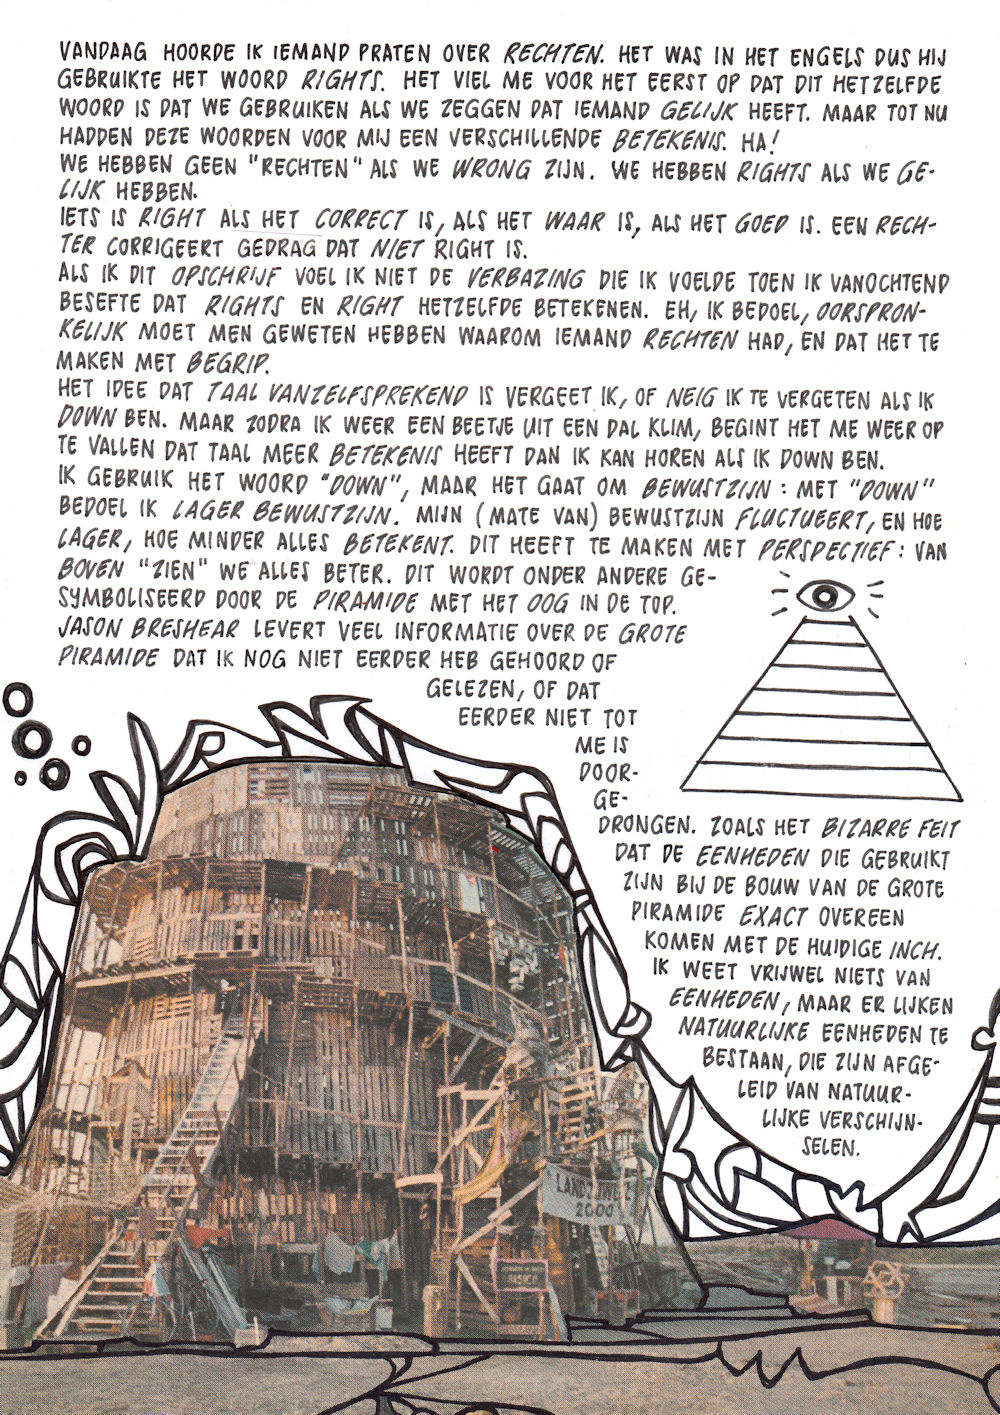 VANDAAG HOORDE IK IEMAND PRATEN OVER RECHTEN. HET WAS IN HET ENGELS DUS HIJ
GEBRUIKTE HET WOORD RIGHTS. HET VIEL ME VOOR HET EERST OP DAT DIT HETZELFDE
WOORD IS DAT WE GEBRUIKEN ALS WE ZEGGEN DAT IEMAND GELIJK HEEFT. MAAR TOT NU
HADDEN DEZE WOORDEN VOOR MIJ EEN VERSCHILLENDE BETEKENIS. HA!
WE HEBBEN GEEN "RECHTEN" ALS WE WRONG ZIJN. WE HEBBEN RIGHTS ALS WE GE-
LIJK HEBBEN.
IETS IS RIGHT ALS HET CORRECT IS, ALS HET WAAR IS, ALS HET GOED IS. EEN RECH-
TER CORRIGEERT GEDRAG DAT NIET RIGHT IS.
ALS IK DIT OPSCHRIJF VOEL IK NIET DE VERBAZING DIE IK VOELDE TOEN IK VANOCHTEND
BESEFTE DAT RIGHTS EN RIGHT HETZELFDE BETEKENEN. EH, IK BEDOEL, OORSPRON-
KELIJK MOET MEN GEWETEN HEBBEN WAAROM IEMAND RECHTEN HAD, EN DAT HET TE
MAKEN MET BEGRIP.
HET IDEE DAT TAAL VANZELFSPREKEND IS VERGEET IK, OF NEIG IK TE VERGETEN ALS IK
DOWN BEN. MAAR ZODRA IK WEER EEN BEETJE UIT EEN DAL KLIM, BEGINT HET ME WEER OP
TE VALLEN DAT TAAL MEER BETEKENIS HEEFT DAN IK KAN HOREN ALS IK DOWN BEN.
IK GEBRUIK HET WOORD "DOWN", MAAR HET GAAT OM BEWUSTZIJN: MET "DOWN"
BEDOEL IK LAGER BEWUSTZIJN. MIJN (MATE VAN) BEWUSTZIJN FLUCTUEERT, EN HOE
LAGER, HOE MINDER ALLES BETEKENT. DIT HEEFT TE MAKEN MET PERSPECTIEF: VAN
BOVEN "ZIEN" WE ALLES BETER. DIT WORDT ONDER ANDERE GE-
SYMBOLISEERD DOOR DE PIRAMIDE MET HET OOG IN DE TOP.
JASON BRESHEAR LEVERT VEEL INFORMATIE OVER DE GROTE
PIRAMIDE DAT IK NOG NIET EERDER HEB GEHOORD OF
GELEZEN, OF DAT
EERDER NIET TOT
ME IS
DOOR-
GE-
DRONGEN. ZOALS HET BIZARRE FEIT
DAT DE EENHEDEN DIE GEBRUIKT
ZIJN BIJ DE BOUW VAN DE GROTE
PIRAMIDE EXACT OVEREEN
KOMEN MET DE HUIDIGE INCH.
IK WEET VRIJWEL NIETS VAN
EENHEDEN, MAAR ER LIJKEN
NATUURLIJKE EENHEDEN TE
BESTAAN, DIE ZIJN AFGE-
LEID VAN NATUUR-
LIJKE VERSCHIJN-
SELEN.
2000